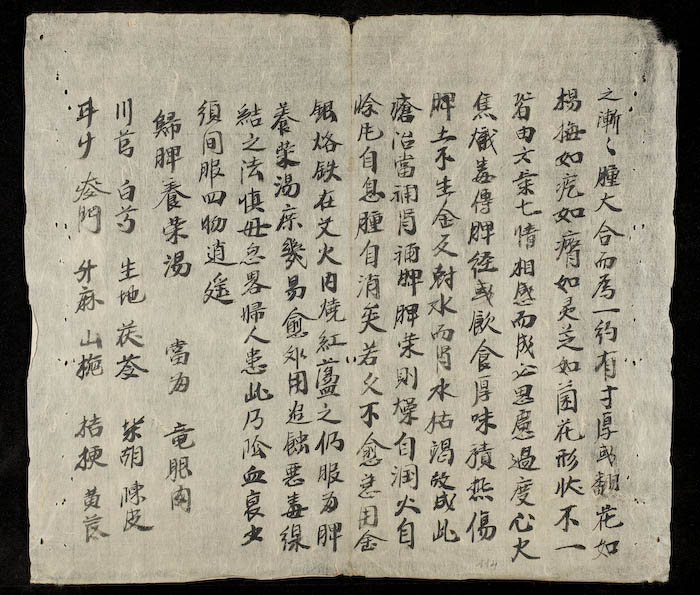 之漸〻腫大合而爲一約有寸厚或翻花如
楊梅如疙如癤如灵芝如菌花形状不一
皆由六葉七情相感而成必思慮過度心火
焦熾毒傳脾经或飲食厚味積热傷
脾土不生金又尅水而腎水枯渴故成此
瘡治當補腎補脾脾荣則燥自润火自
除自息腫自消矣若久不愈急用金
銀烙铁在艾火内燒紅盪之仍服归脾
養荣湯庶幾易愈用追蝕悪毒線
結之法慎毋忽畧婦人患此乃陰血衰少
须间服四物逍遥
歸脾養荣湯 當归 竜眼肉
川芎 白芍 生地 茯苓 柴胡 陳皮
升麻 山梔 桔梗 黄芪